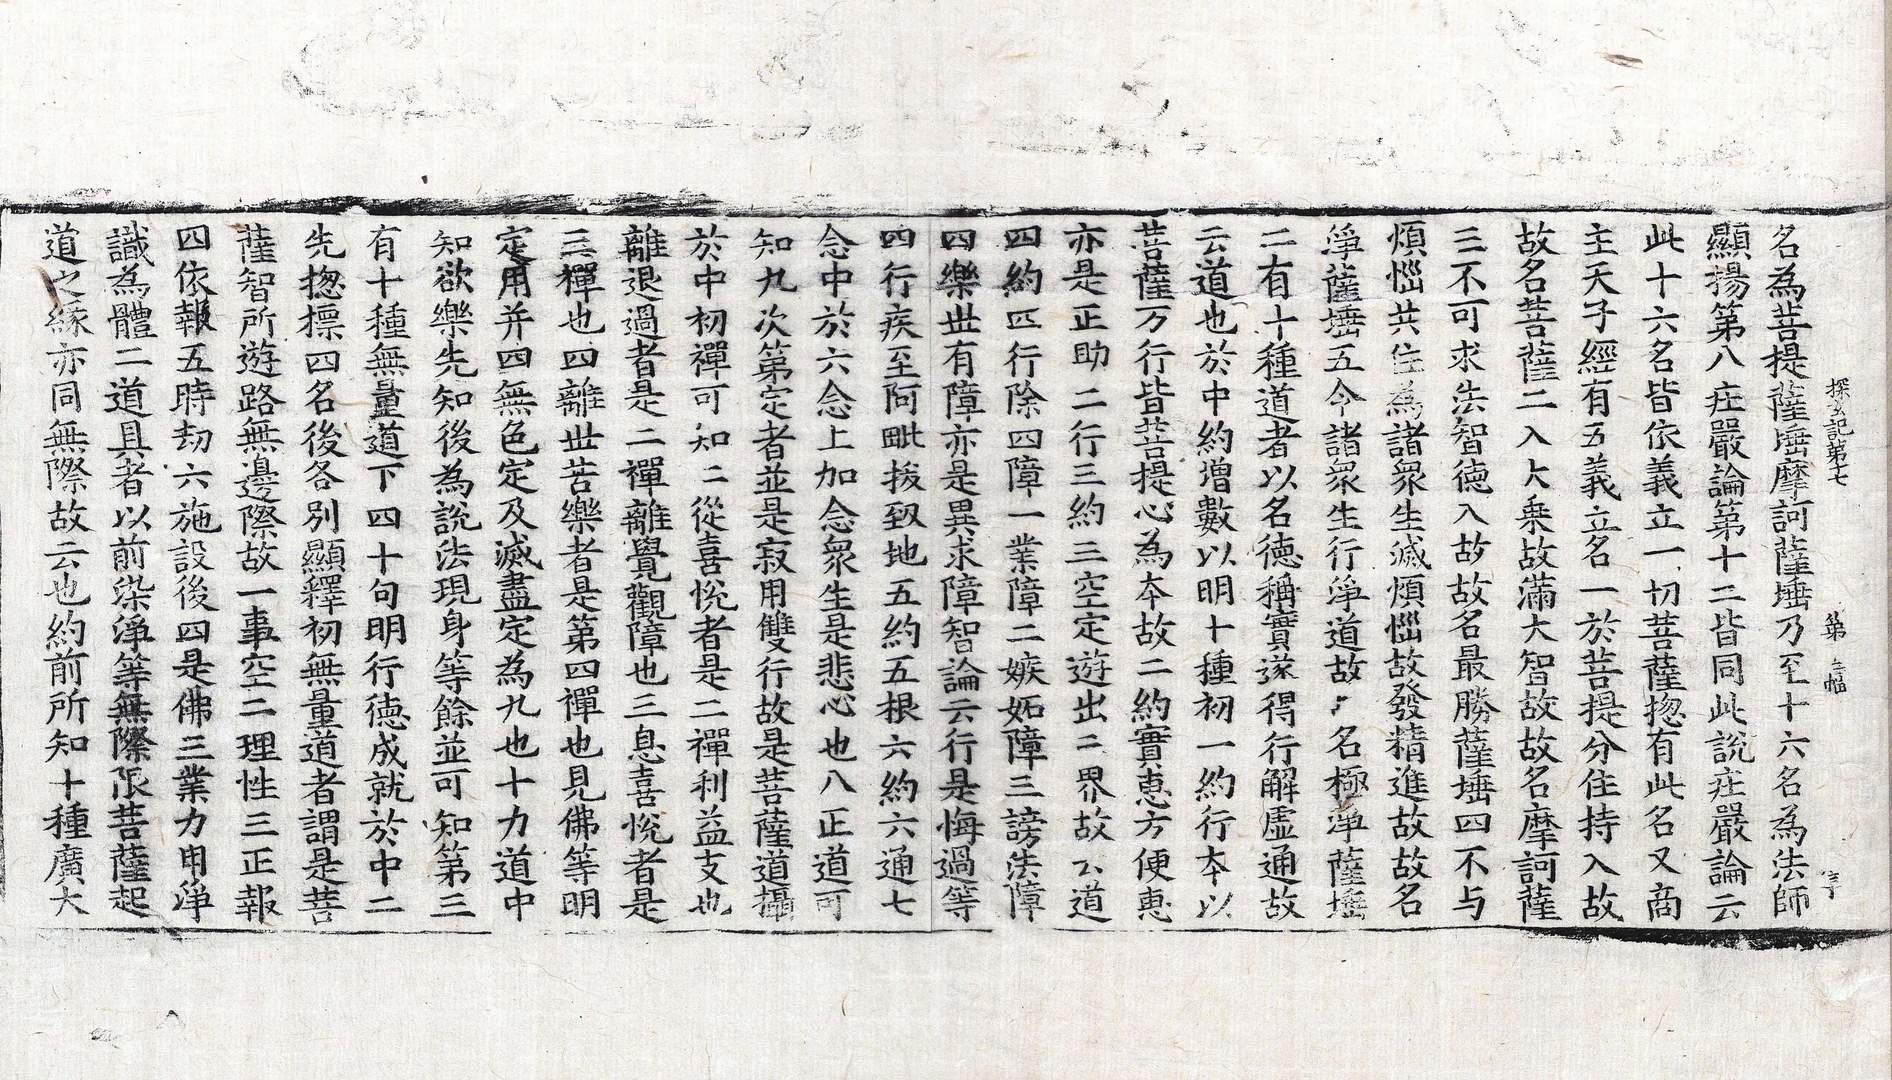 探玄記第十七 第三幅 宇
名為菩提薩埵摩訶薩埵乃至十六名為法師
顯揚第八庄嚴論第十二皆同此說庄嚴論云
此十六名皆依義立一切菩薩揔有此名又商
主天子經有五義立名一於菩提分住持入故
故名菩薩二入大乗故滿大智故故名摩訶薩
三不可求法智德入故故名最勝薩埵四不与
煩惱共住為諸衆生滅煩惱故發精進故故名
淨薩埵五令諸衆生行淨道故名極淨薩埵
二有十種道者以名德稱實遂得行解虛通故
云道也於中約增數以明十種初一約行本以
菩薩万行皆菩提心為本故二約實恵方便恵
亦是正助二行三約三空定遊出三界故云道
四約四行除四障一業障二嫉妬障三謗法障
四樂世有障亦是異求障智論云行是悔過等
四行疾至阿毗拔致地五約五根六約六通七
念中於六念上加念衆生是悲心也八正道可
知九次第定者並是寂用雙行故是菩薩道攝
於中初禪可知二從喜悅者是二禪利益支也
離退過者是二禪離覺觀障也三息喜悅者是
三禪也四離世苦樂者是第四禪也見佛等明
定用并四無色定及滅盡定為九也十力道中
知欲樂先知後為說法現身等餘並可知第三
有十種無量道下四十句明行德成就於中二
先揔摽四名後各別顯釋初無量道者謂是菩
薩智所遊路無邊際故一事空二理性三正報
四依報五時劫六施設後四是佛三業力用淨
識為體二道具者以前染淨等無際限菩薩起
道之緣亦同無際故云也約前所知十種廣大